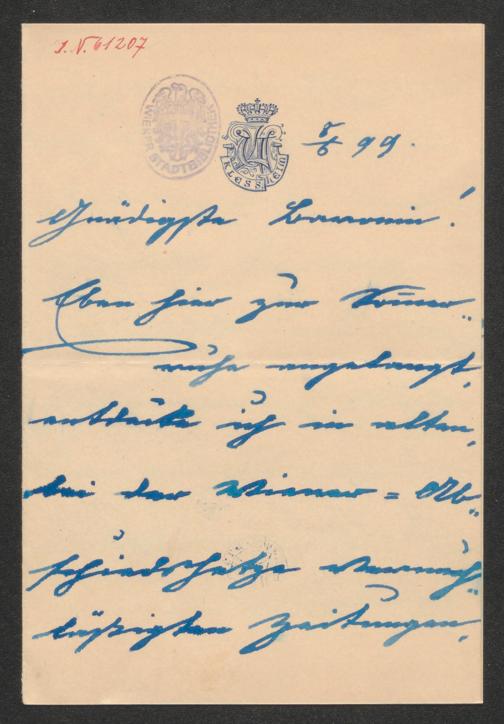 I.N. 61207
WIENER STADTBIBLIOTHEK
KLESSHEIM
8/6 99.
Gnädigste Baronin!
Eben hier zur Som̄er„
ruhe angelangt,
entdecke ich in alten,
bei der Wiener = Ab„
schiedshetze vernach„
läßigten Zeitungen,